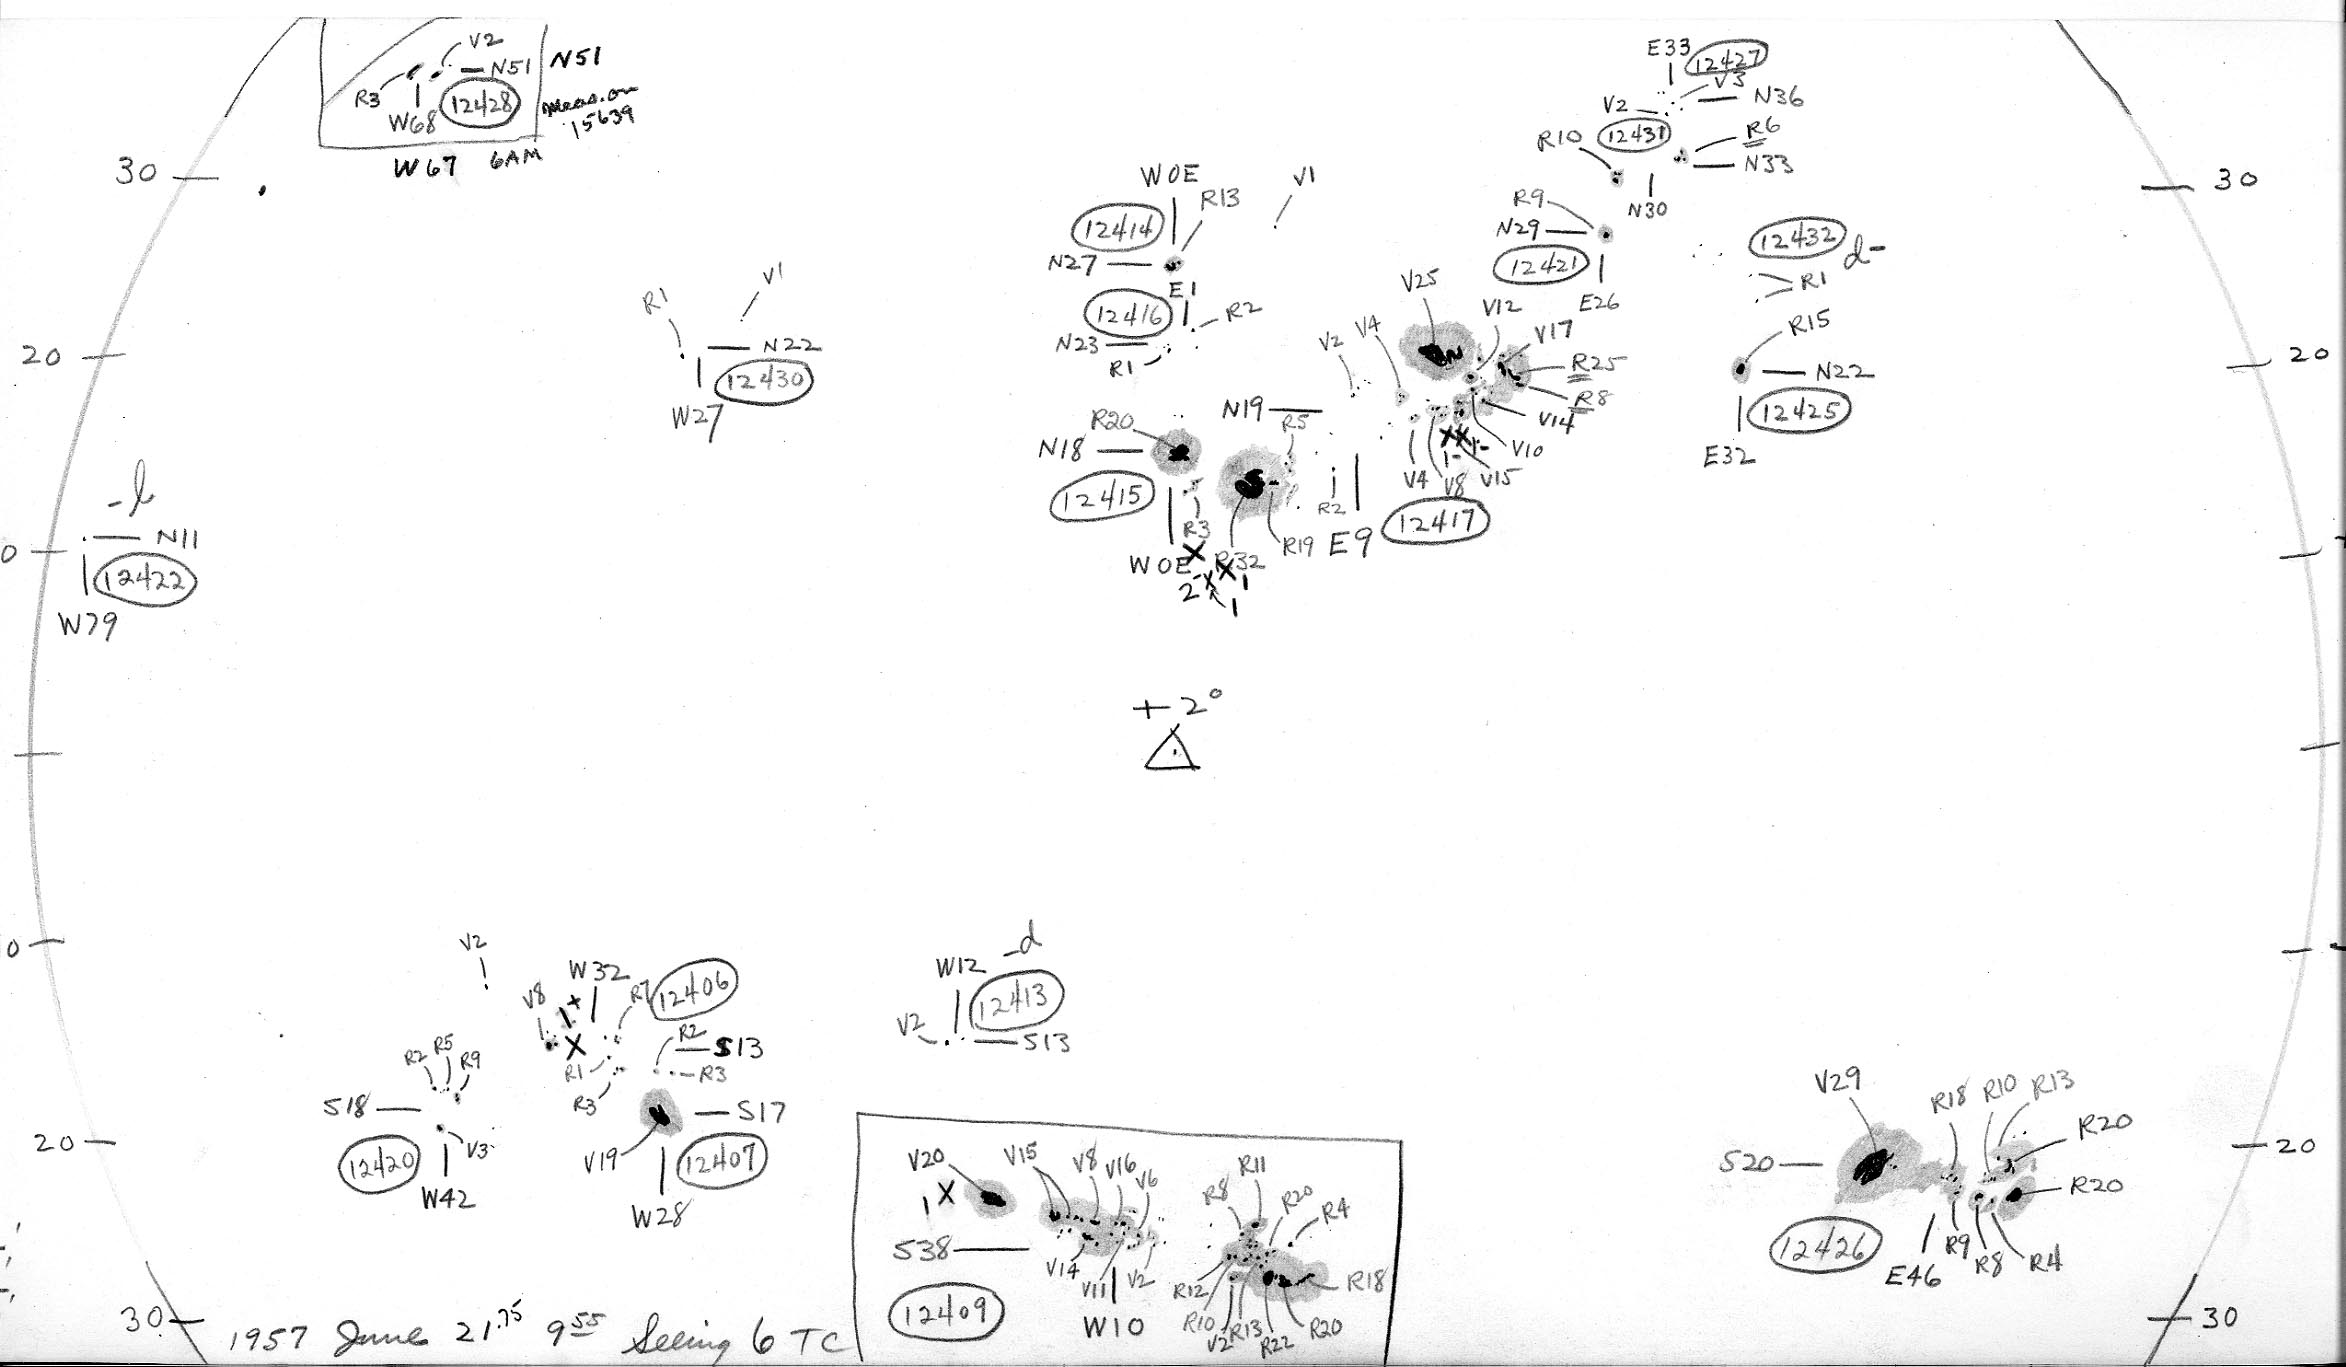 V2
R3 N51 N51
W68 12428 meas. on
15639
W67 6AM
E33 12427
V3
V2 N36
R10 12431 R6
N33
N30
30
30
W0E
R13 V1
12414
N27
E1
12416 R2
N23
R1
R9
N29
12421
E26
12432 d-
R1
R1 V1
N22
12430
W27
20
20
V25
V12
V2 V4 V17
R25
R8
V14
V10
V15
V4 V8
12417
R15
N22
12425
E32
N19
R20 R5
N18
12415
R3
W0E X R32 R19 R2 E9
2- X X 1
1
XX
1- 1-
-l
N11
12422
W79
0
+2°
0
V2
W32 12406
V8 1+ R7
X R2
S13
R1 R3
R3
R2 R5 R9
S18
12420 V3
W42
S17
V19 12407
W28
W12 -d
12413
V2 S13
20
V20 V15 V8 V16 V6
1 X
S38
V14 V11 V2
12409
W10
R11
R8 R20 R4
R12 R18
R10 V2 R13 R22 R20
V29 R18 R10 R13
R20
S20
R20
12426
E46 R9 R8 R4
20
30
30
1957 June 21.75 9 55 Seeing 6 TC